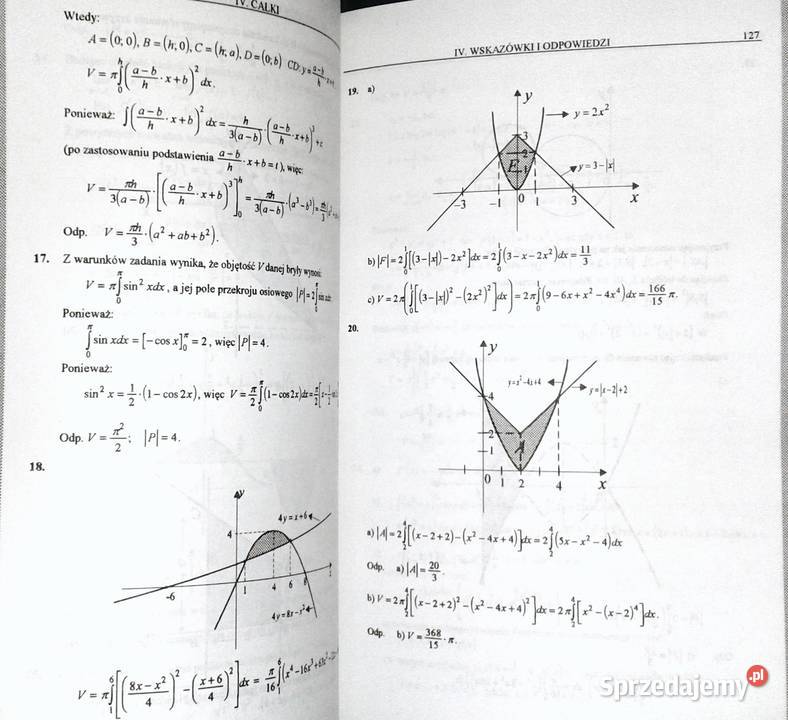 IV. CAŁKI
Wtedy:
A = (0; 0), B = (h; 0), C = (h; a), D = (0; b) CD: y = a−b/h
V = π∫₀ʰ(a−b/h · x + b)² dx.
Ponieważ: ∫(a−b/h · x + b)² dx = h/3(a−b) · (a−b/h · x + b)³ + c
(po zastosowaniu podstawienia a−b/h · x + b = t), więc:
V = πh/3(a−b) · [(a−b/h · x + b)³]₀ʰ = πh/3(a−b) · (a³ − b³) = πh/3
Odp. V = πh/3 · (a² + ab + b²).
17. Z warunków zadania wynika, że objętość V danej bryły wynosi:
V = π∫₀^π sin² xdx, a jej pole przekroju osiowego |P| = 2∫₀^π sin xdx
Ponieważ:
∫₀^π sin xdx = [−cos x]₀^π = 2, więc |P| = 4.
Ponieważ:
sin² x = 1/2 · (1 − cos 2x), więc V = π/2 ∫₀^π (1 − cos 2x)dx = π/2 [x − 1/2
Odp. V = π²/2; |P| = 4.
18.
y
4y = x + 6
4
-6
1
4
6
8
4y = 8x − x²
V = π∫₁⁶[(8x − x²/4)² − (x + 6/4)²]dx = π/16 ∫₁⁶(x⁴ − 16x³ + 63x²
IV. WSKAZÓWKI I ODPOWIEDZI
127
19. a)
y
y = 2x²
3
2
E
1
y = 3 − |x|
−3
−1
0
1
3
x
b) |F| = 2∫₀¹[(3 − |x|) − 2x²]dx = 2∫₀¹(3 − x − 2x²)dx = 11/3.
c) V = 2π(∫₀¹[(3 − |x|)² − (2x²)²]dx) = 2π∫₀¹(9 − 6x + x² − 4x⁴)dx = 166/15 π.
20.
y
y = x² − 4x + 4
y = |x − 2| + 2
4
2
1
A
0
1
2
4
x
a) |A| = 2∫₂⁴[(x − 2 + 2) − (x² − 4x + 4)]dx = 2∫₂⁴(5x − x² − 4)dx
Odp. a) |A| = 20/3.
b) V = 2π∫₂⁴[(x − 2 + 2)² − (x² − 4x + 4)²]dx = 2π∫₂⁴[x² − (x − 2)⁴]dx.
Odp. b) V = 368/15 · π.
Sprzedajemy.pl